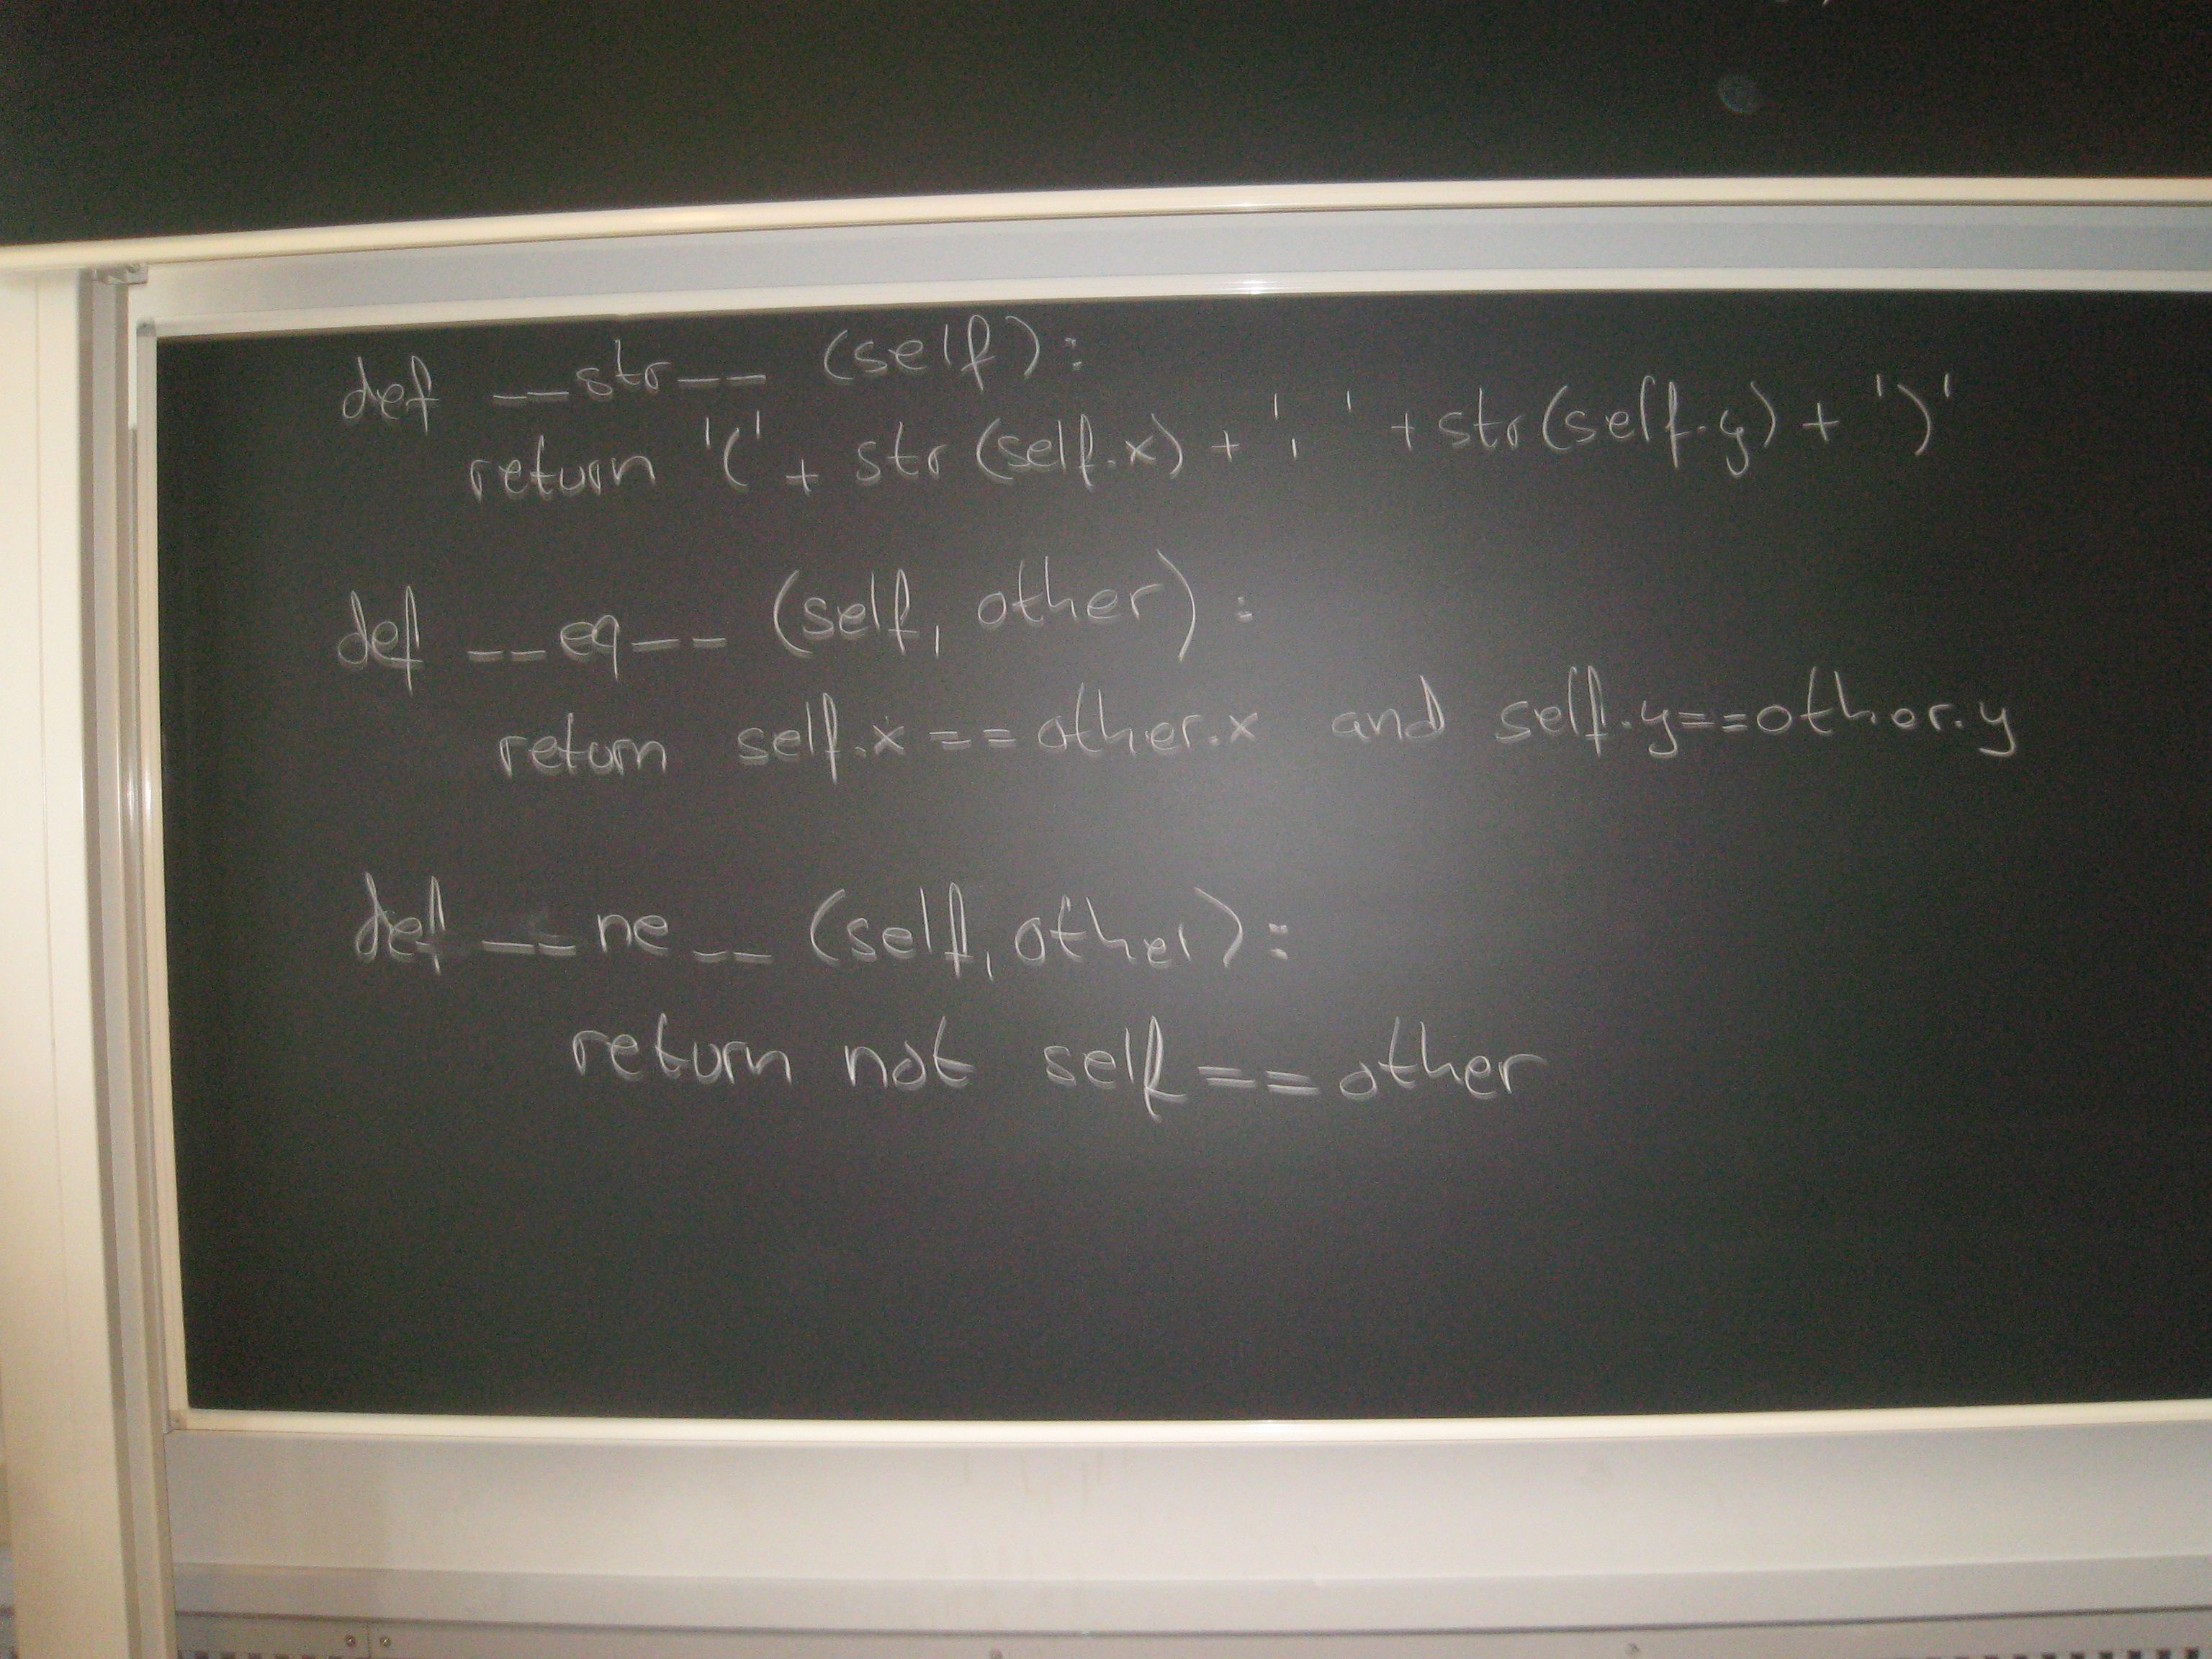 def __str__ (self):
return '(' + str(self.x) + ', ' + str(self.y) + ')'
def __eq__ (self, other):
return self.x==other.x and self.y==other.y
def __ne__ (self, other):
return not self==other